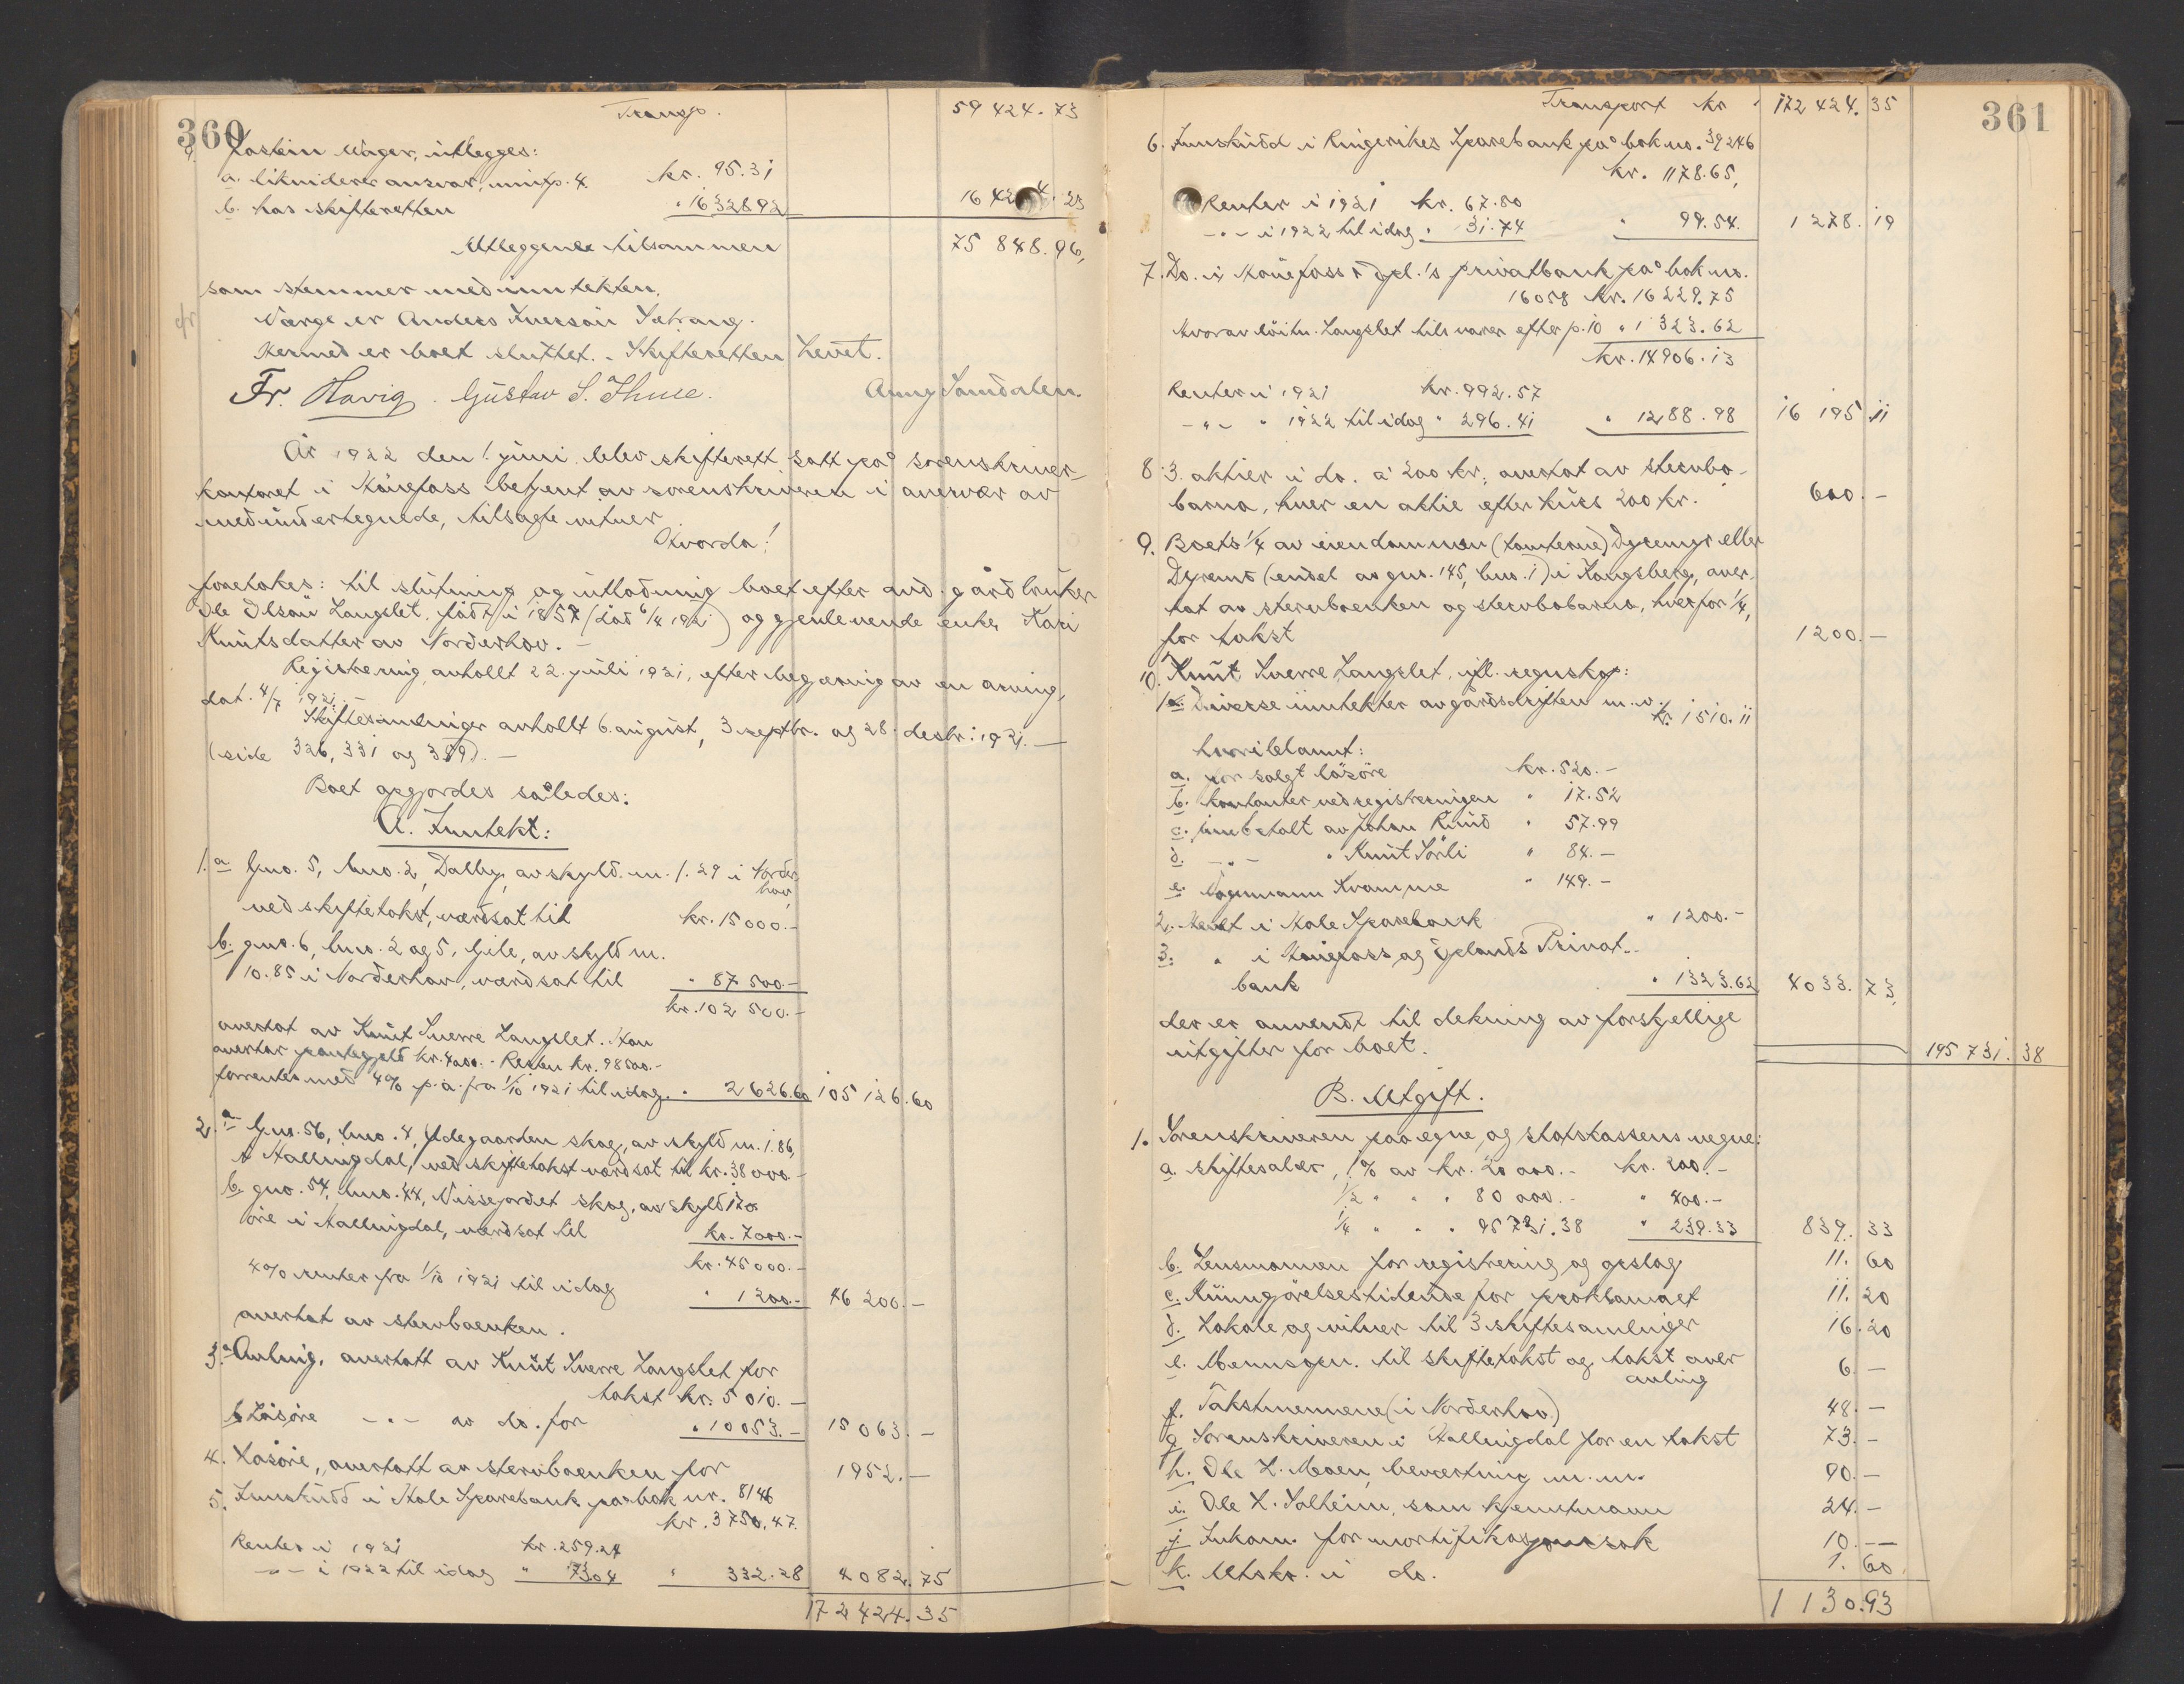 360
Transp. 59 424.73
9. Jostein Mager, utlegges:
a. likviderer ansvar, inntp. 4. kr. 95.31
b. hos skifteretten " 16 328 92 16 424.23
Utleggende tilsammen 75 848.96,
som stemmer med inntekten.
Værge er Anders Iverson Sætrang.
Hermed er boet sluttet. – Skifteretten hevet.
Fr. Havig. Gustav S. Thue. Anny Samdalen.
År 1922 den 1. juni blev skifterett satt på sorenskriver-
kontoret i Hönefoss betjent av sorenskriveren i overvær av
medundertegnede, tilsagte vitner
Hvorda!
foretokes: til slutning og utlodning boet efter avd. gårdbruker
Ole Olson Langslet, född i 1857 (död 6/4 1921) og gjenlevende enke Kari
Knutsdatter av Norderhov. –
Registrering avholt 22. juli 1921, efter begjæring av en arving,
dat. 4/7 1921. –
Skiftesamlinger avholt 6. august, 3 septbr. og 28. desbr. 1921. –
(side 326, 331 og 389). –
Boet opgjordes således:
A. Inntekt:
1. a Gno. 5, bno. 2, Dalby, av skyld m. 1.29 i Norder-
hov,
ved skiftetakst, værdsat til kr. 15 000.-
b. gno. 6, bno. 2 og 5, Gile, av skyld m.
10.85 i Norderhov, værdsat til " 87 500.-
kr. 102 500.-
overtat av Knut Sverre Langslet. Han
overtar pantegjeld kr. 4000.- Resten kr. 98 500.-
forrentes med 4% p.a. fra 1/10 1921 til idag. " 2 626.60 105 126.60
2. a Gno. 56, bno. 4, Ödegaarden skog, av skyld m. 1.86,
i Hallingdal, ved skiftetakst værdsat til kr. 38 000.-
b. gno. 54, bno. 44, Nissejordet skog, av skyld 170
öre i Hallingdal, værdsat til kr. 7000.-
kr. 45 000.-
4% renter fra 1/10 1921 til idag " 1 200.- 46 200.-
overtat av stervboenken.
3. a Avling, overtatt av Knut Sverre Langslet for
takst kr. 5 010.-
b Lösöre -"- av do. for " 10 053.- 15 063.-
4. Lösöre, overtatt av stervboenken for 1952.-
5. Innskudd i Hole Sparebank på bok nr. 8146
kr. 3 750.47.
Renter i 1921 kr. 259.24
-"- i 1922 til idag " 73 04 " 332.28 4 082.75
172 424.35
361
Transport kr. 172 424.35
6. Innskudd i Ringerikes Sparebank på bok no. 39246
kr. 1178.65,
Renter i 1921 kr. 67.80
-"- i 1922 til idag " 31.74 " 99.54. 1 278.19
7. Do. i Hönefoss & Opl.'s privatbank på bok no.
16058 kr. 16 229.75
Hvorav löitn. Langslet tilsvarer efter p. 10 " 1 323.62
kr. 14 906.13
Renter i 1921 kr. 992.57
-"- " 1922 til idag " 296.41 " 1288.98 16 195.11
8. 3 aktier i do. a 200 kr., overtat av stervbo-
barna, hver en aktie efter kurs 200 kr. 600.-
9. Boets 1/4 av eiendommen (tomterne) Dyremyr eller
Dyremo (endel av gno. 145, bno. 1) i Kongsberg, over-
tat av stervboenken og stervbobarna, hver for 1/4,
for takst 1200.-
10. Knut Sverre Langslet, ifl. regnskap:
1. Diverse inntekter av gårdsdriften m. v. kr. 1510.11
hvoriblant:
a. for solgt lösöre kr. 520.-
b. kontanter ved registreringen " 17.52
c. innbetalt av Johan Rud " 57.99
d. -"- " Knut Sörli " 84.-
e. Vognmann Kramme " 149.-
2. Hevet i Hole Sparebank " 1200.-
3. " i Hönefoss og Oplands Privat-
bank " 1323.62 4033.73
der er anvendt til dekning av forskjellige
utgifter for boet.
195 731.38
B. Utgift.
1. Sorenskriveren paa egne og statskassens vegne:
a. skiftesalær, 1% av kr. 20 000.- kr. 200.-
1/2 " " " 80 000.- " 400.-
1/4 " " " 95 731.38 " 239.33 839.33
b. Lensmannen for registrering og opslag 11.60
c. Kunngörelsestidende for proklamaet 11.20
d. Lokale og vitner til 3 skiftesamlinger 16.20
e. Mennsopn. til skiftetakst og takst over
avling 6.-
f. Takstmennene (i Norderhov) 48.-
g Sorenskriveren i Hallingdal for en takst 73.-
h. Ole H. Moen, bevertning m. m. 90.-
i. Ole H. Solheim, som kjentmann 24.-
j Inkam. for mortifikasjonssak 10.-
k. Utskr. i do. 1.60
1 130.93